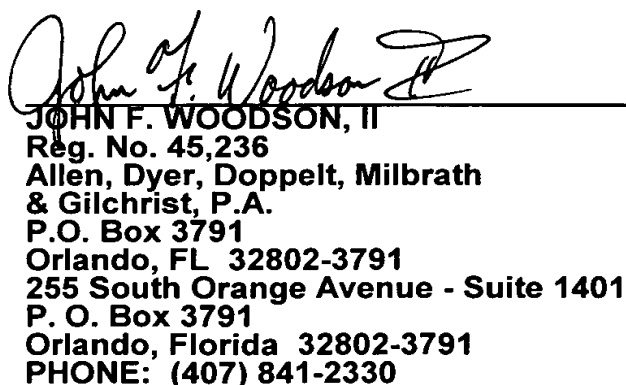 John F. Woodson II
JOHN F. WOODSON, II
Reg. No. 45,236
Allen, Dyer, Doppelt, Milbrath
& Gilchrist, P.A.
P.O. Box 3791
Orlando, FL 32802-3791
255 South Orange Avenue - Suite 1401
P. O. Box 3791
Orlando, Florida 32802-3791
PHONE: (407) 841-2330